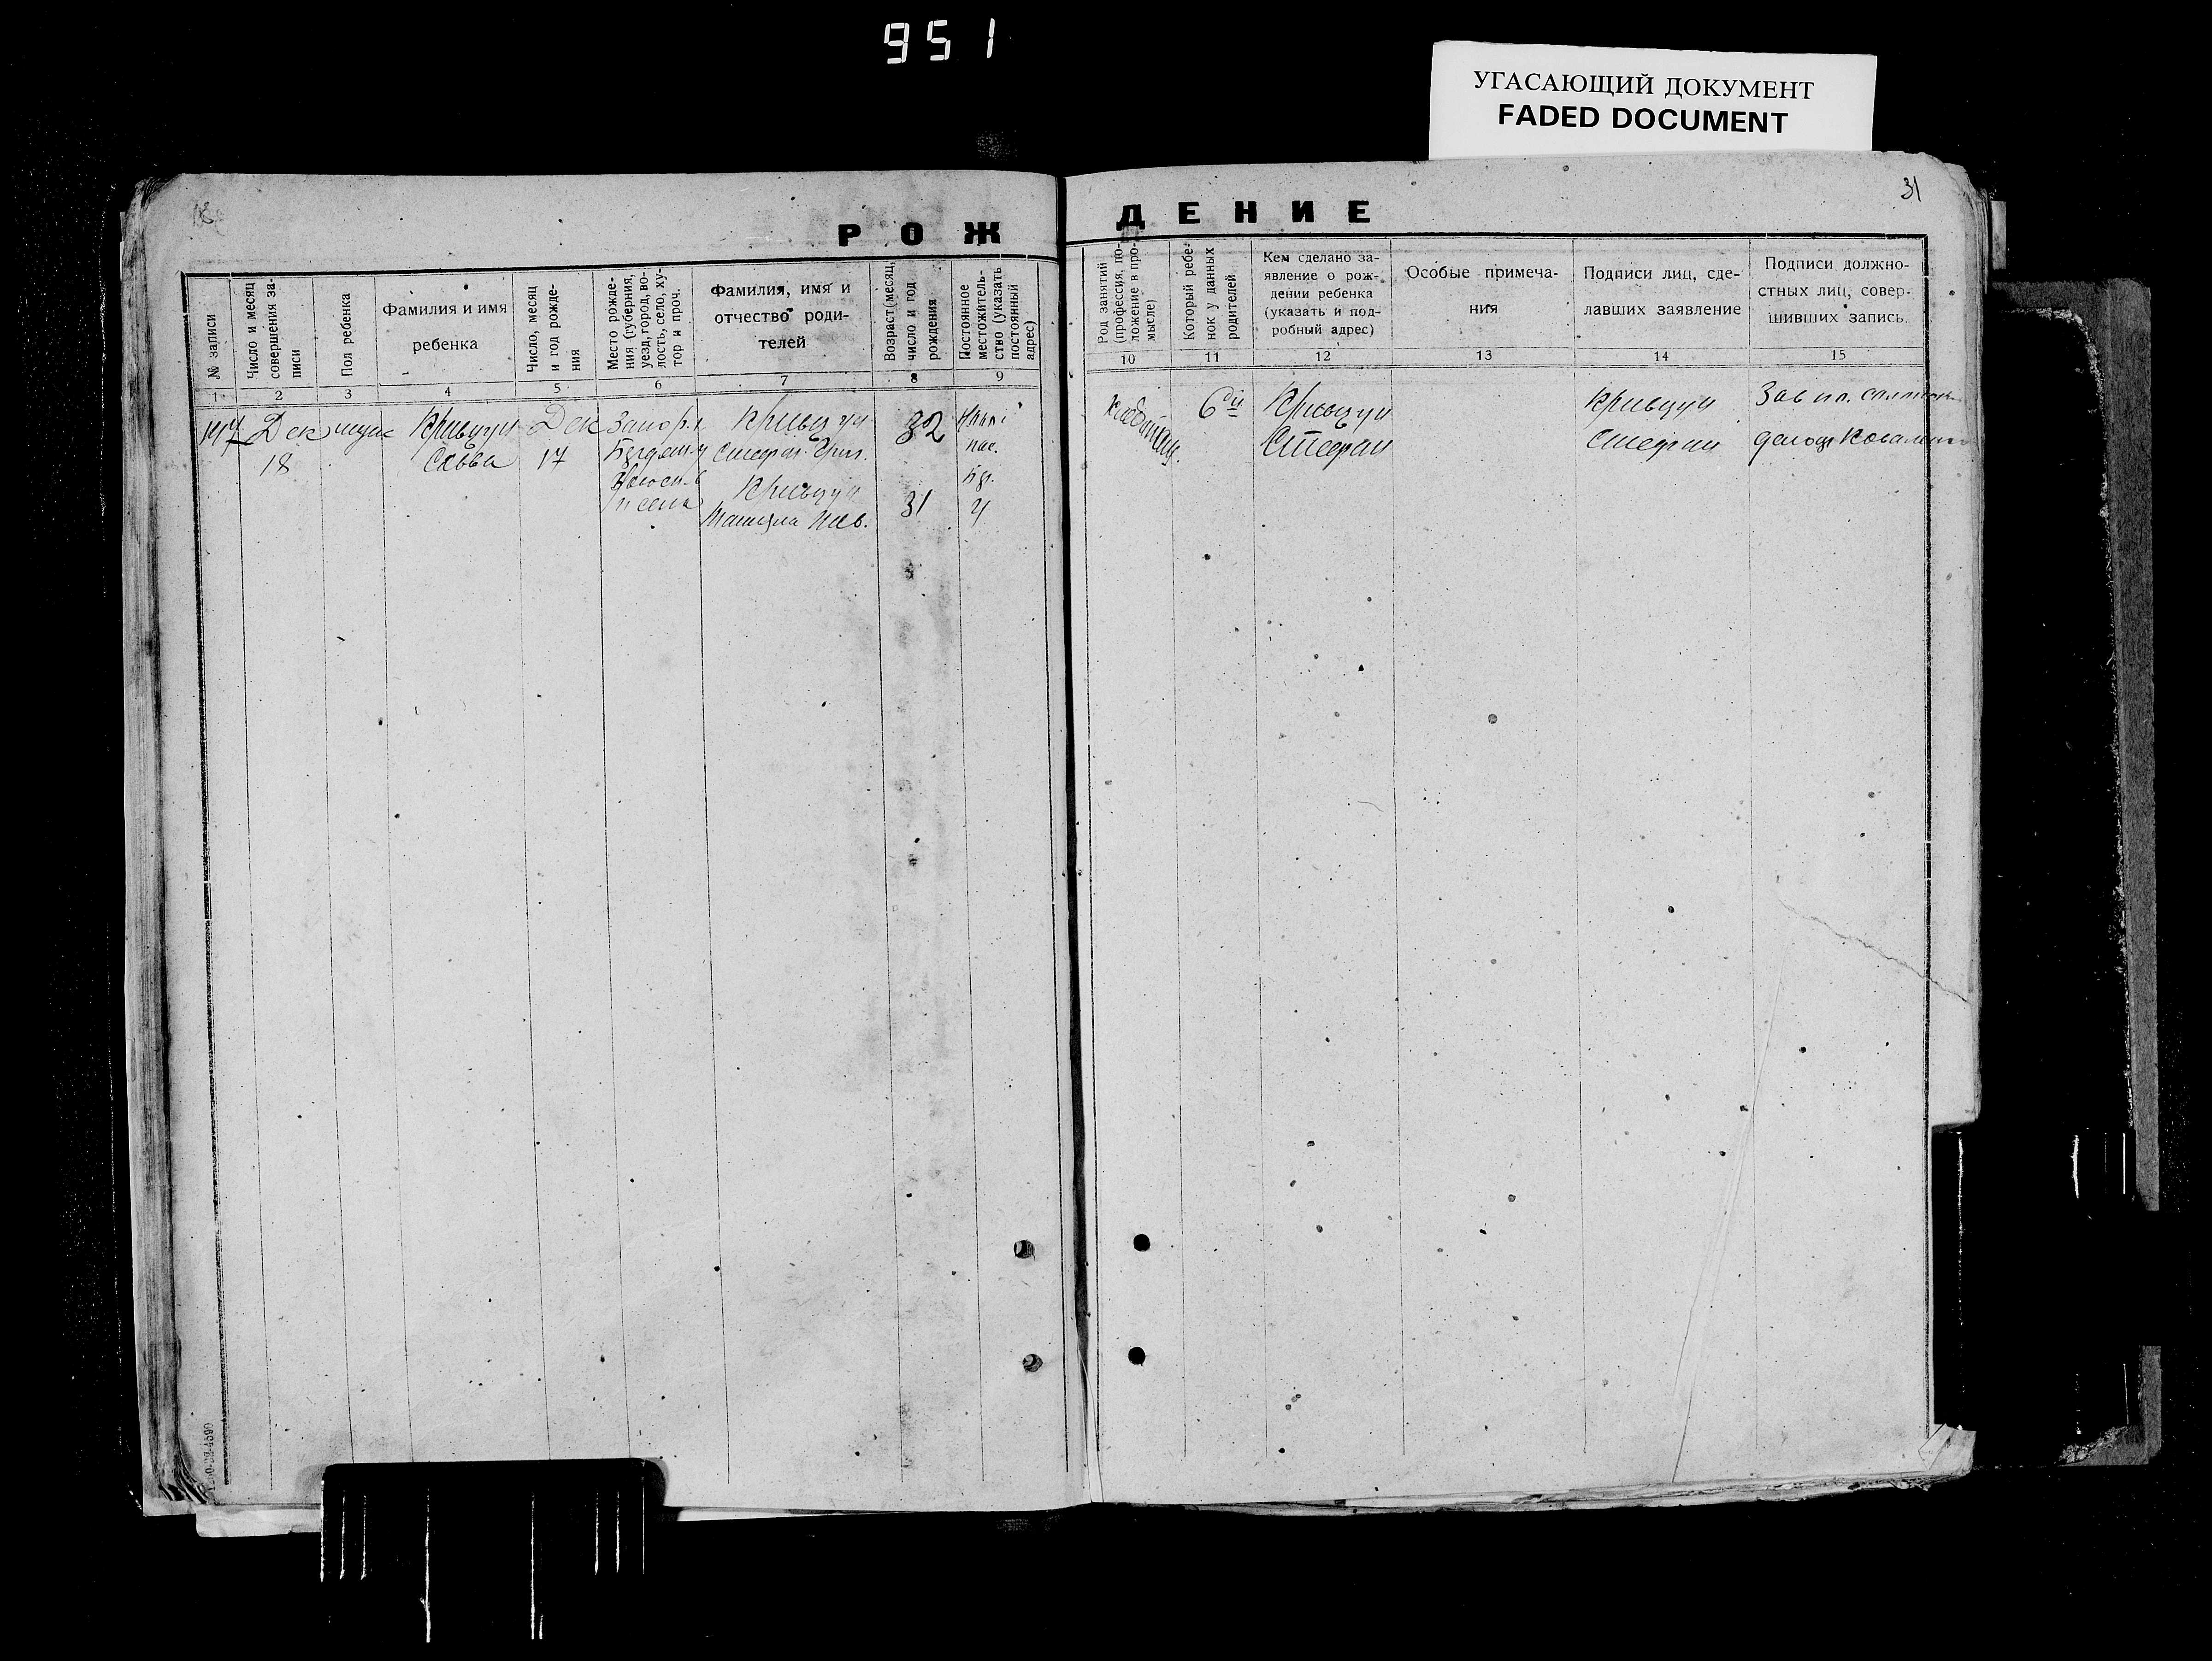 951
УГАСАЮЩИЙ ДОКУМЕНТ
FADED DOCUMENT
31
РОЖДЕНИЕ
№ записи
Число и месяц
совершения за-
писи
Пол ребенка
Фамилия и имя
ребенка
Число, месяц
и год рожде-
ния
Место рожде-
ния (губерния,
уезд, город, во-
лость, село, ху-
тор и проч.
Фамилия, имя и
отчество роди-
телей
Возраст (месяц,
число и год
рождения
Постоянное
местожитель-
ство (указать
постоянный
адрес)
Род занятий
(профессия, по-
ложение в про-
мысле)
Который ребе-
нок у данных
родителей
Кем сделано за-
явление о рож-
дении ребенка
(указать и под-
робный адрес)
Особые примеча-
ния
Подписи лиц, сде-
лавших заявление
Подписи должно-
стных лиц, совер-
шивших запись.
1 2 3 4 5 6 7 8 9 10 11 12 13 14 15
Дек
18
Кривцун
Савва
Дек
17
Запор.
Кривцун
Стефан Григ.
32
Кривцун
31
6ой
Кривцун
Стефан
Кривцун
Стефан
Зав